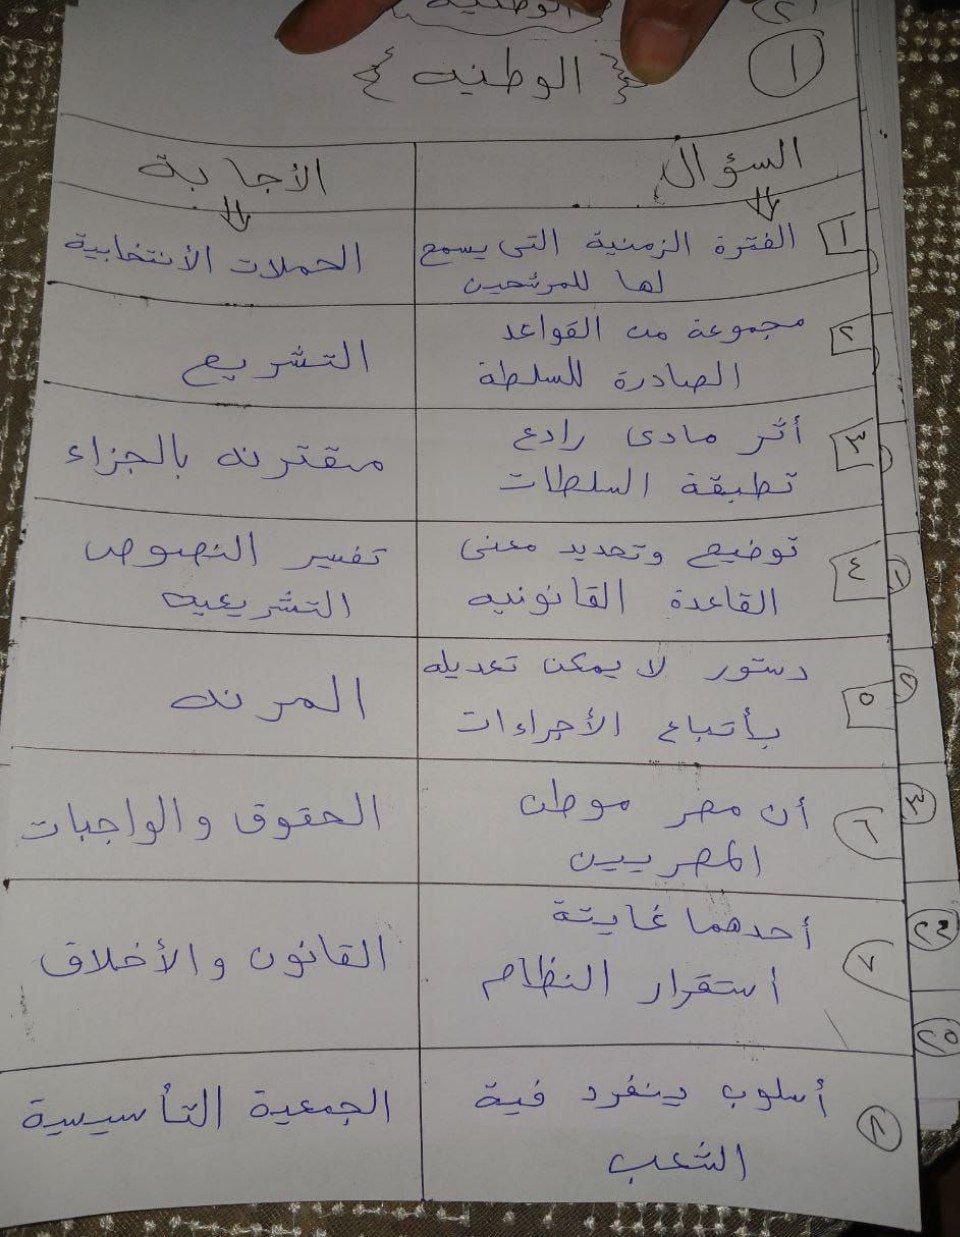 الوطنية
١
الوطنيه
السؤال
الأجابة
١ الفترة الزمنية التى يسمح
لها للمرشحين
الحملات الأنتخابية
٢ مجموعة من القواعد
الصادرة للسلطة
التشريع
٣ أثر مادى رادع
تطبقة السلطات
مقترنه بالجزاء
٤ توضيح وتحديد معنى
القاعدة القانونيه
تفسير النصوص
التشريعيه
٥ دستور لا يمكن تعديله
بأتباع الأجراءات
المرنه
٦ أن مصر موطن
المصريين
الحقوق والواجبات
٧ أحدهما غايتة
استقرار النظام
القانون والأخلاق
٨ أسلوب ينفرد فية
الشعب
الجمعية التأسيسية